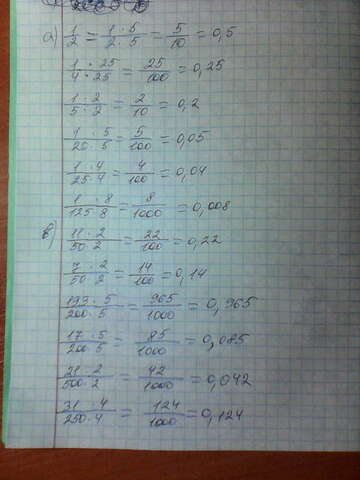 а) 1/2 = 1 · 5/2 · 5 = 5/10 = 0,5
1 · 25/4 · 25 = 25/100 = 0,25
1 · 2/5 · 2 = 2/10 = 0,2
1 · 5/20 · 5 = 5/100 = 0,05
1 · 4/25 · 4 = 4/100 = 0,04
1 · 8/125 · 8 = 8/1000 = 0,008
в) 11 · 2/50 · 2 = 22/100 = 0,22
7 · 2/50 · 2 = 14/100 = 0,14
193 · 5/200 · 5 = 965/1000 = 0,965
17 · 5/200 · 5 = 85/1000 = 0,085
21 · 2/500 · 2 = 42/1000 = 0,042
31 · 4/250 · 4 = 124/1000 = 0,124